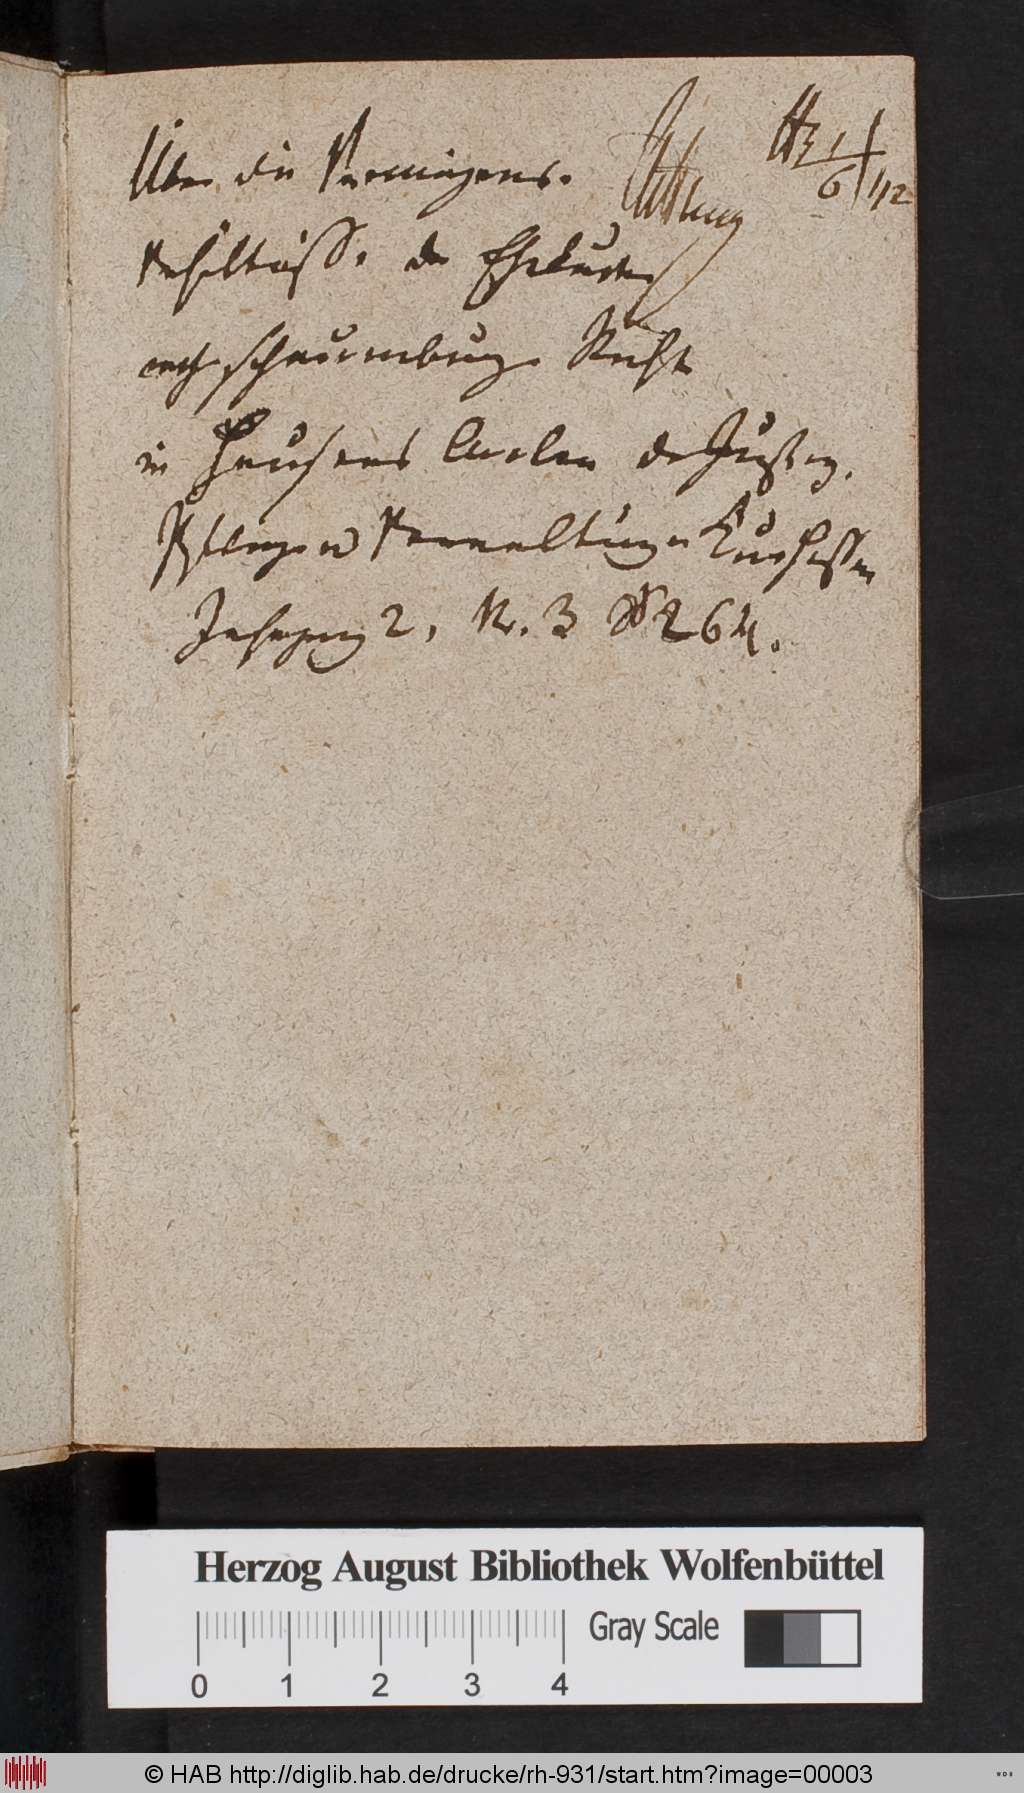 Über die Vermögens-
verhältnisse der Eheleute
nach schaumburg. Recht
in Heusers Annalen der Justiz
pflege und Verwaltung in Kurhessen
Jahrgang 2, Nr. 3 264.
6 42
Herzog August Bibliothek Wolfenbüttel
Gray Scale
0 1 2 3 4
© HAB http://diglib.hab.de/drucke/rh-931/start.htm?image=00003